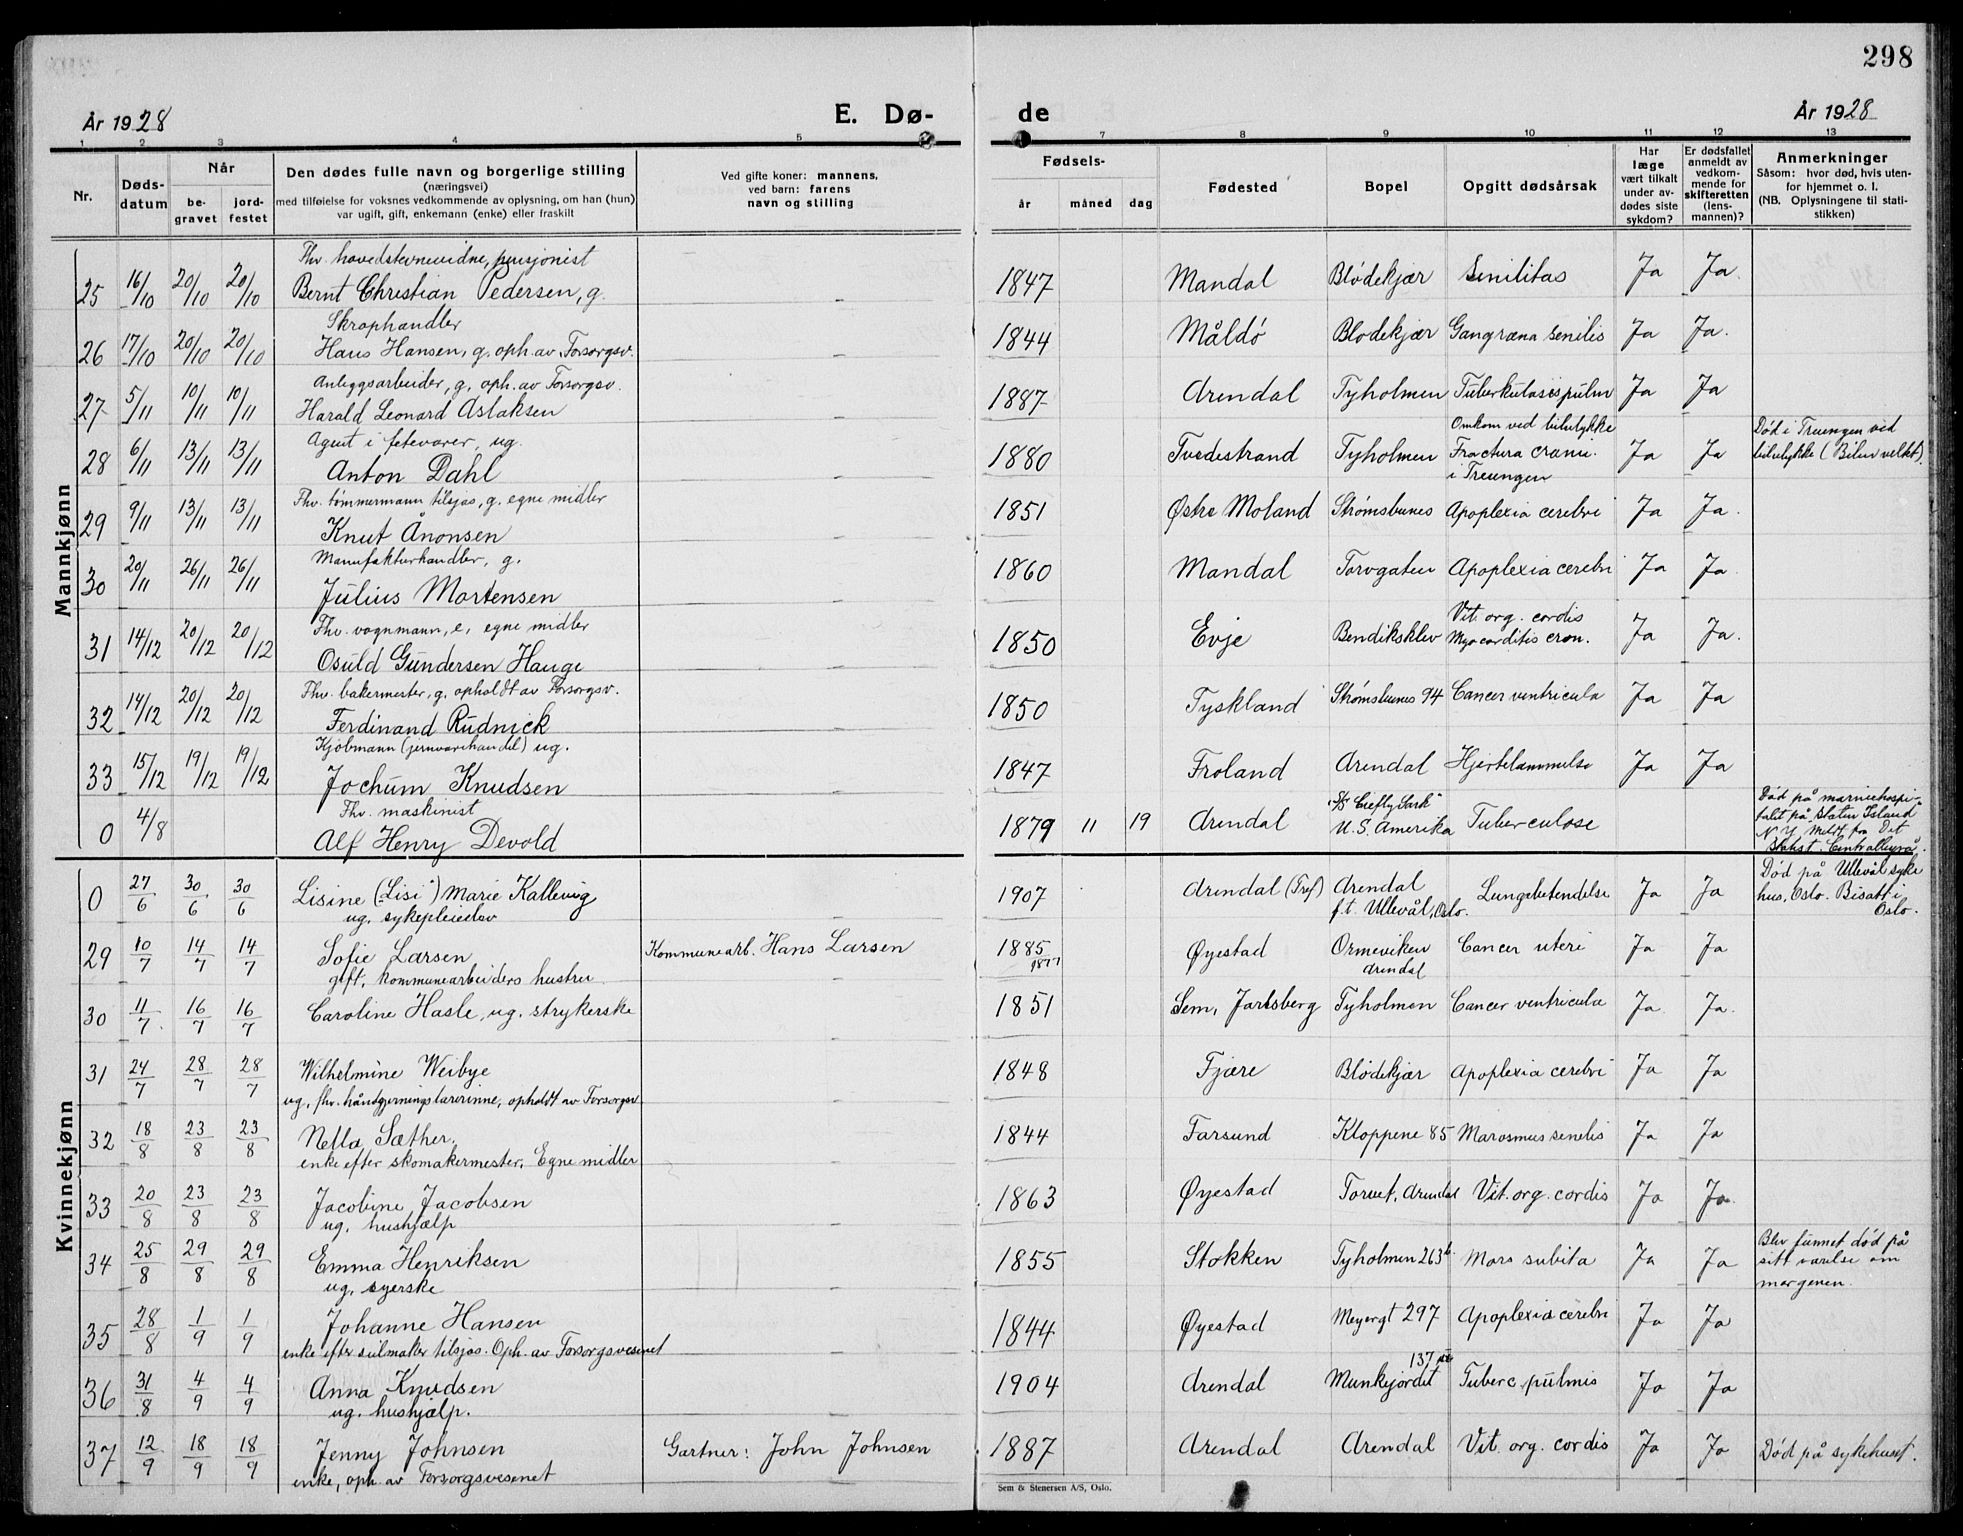 298
År 1928 E. Dø- de År 1928
1 2 3 4 5 7 8 9 10 11 12 13
Nr. Døds-datum Når be-gravet jord-festet Den dødes fulle navn og borgerlige stilling (næringsvei) med tilføielse for voksnes vedkommende av oplysning, om han (hun) var ugift, gift, enkemann (enke) eller fraskilt Ved gifte koner: mannens, ved barn: farens navn og stilling Fødsels- år måned dag Fødested Bopel Opgitt dødsårsak Har læge vært tilkalt under av-dødes siste sykdom? Er dødsfallet anmeldt av vedkom-mende for skifteretten (lens-mannen)? Anmerkninger Såsom: hvor død, hvis uten-for hjemmet o. l. (NB. Oplysningene til stati-stikken)
Mannkjønn
Fhv. hovedstevnevidne, pensjonist
25 16/10 20/10 20/10 Bernt Christian Pedersen, g. – 1847 Mandal Blødekjær Senilitas Ja Ja.
Skraphandler
26 17/10 20/10 20/10 Hans Hansen, g. oph. av Forsorgsv. – 1844 Måldø Blodekjær Gangræna senilis Ja Ja.
Anleggsarbeider, g. oph. av Forsorgsv.
27 5/11 10/11 10/11 Harald Leonard Aslaksen – 1887 Arendal Tyholmen Tuberkulosis pulm Ja Ja
Agent i fetevarer, ug. Omkom ved bilulykke Død i Treungen ved
28 6/11 13/11 13/11 Anton Dahl – 1880 Tvedestrand Tyholmen Fractura cranii. Ja Ja bilulykke (Bilen veltet).
i Treungen
Fhv. tømmermann tilsjøs, g. egne midler
29 9/11 13/11 13/11 Knut Ånonsen – 1851 Østre Moland Strømsbunes Apoplexia cerebri Ja Ja.
Manufakturhandler, g.
30 20/11 26/11 26/11 Julius Mortensen – 1860 Mandal Torvgaten Apoplexia cerebri Ja Ja.
Fhv. vognmann, e, egne midler Vit. org. cordis
31 14/12 20/12 20/12 Osuld Gundersen Hauge – 1850 Evje Bendiksklev Myocarditis cron. Ja Ja.
Fhv. bakermester, g. opholdt av Forsorgsv.
32 14/12 20/12 20/12 Ferdinand Rudnick – 1850 Tyskland Strømsbunes 94 Cancer ventricula Ja Ja
Kjøbmann (jernvarehandel) ug.
33 15/12 19/12 19/12 Jochum Knudsen – 1847 Froland Arendal Hjertelammelse Ja Ja
Fhv. maskinist S/S Død på marinehospi-
0 4/8 Alf Henry Devold 1879 11 19 Arendal U.S. Amerika Tuberculose talet på Staten Island
N Y Meldt fra Det
Statist. Centralbyrå.
Kvinnekjønn
0 27/6 30/6 30/6 Lisine ("Lisi") Marie Kallevig 1907 Arendal (Tref) Arendal Lungebetendelse Ja Ja Død på Ullevål syke
ug. sykepleieelev – f.t. Ullevål, Oslo. hus, Oslo. Bisatt i
Oslo.
29 10/7 14/7 14/7 Sofie Larsen Kommunearb. Hans Larsen 1885 Øyestad Ormeviken Cancer uteri Ja Ja
gift, kommunearbeiders hustru. – 1877 Arendal
30 11/7 16/7 16/7 Caroline Hasle, ug. strykerske – 1851 Sem, Jarlsberg Tyholmen Cancer ventricula Ja Ja.
31 24/7 28/7 28/7 Wilhelmine Weibye 1848 Fjære Blødekjær Apoplexia cerebri Ja Ja
ug, fhv. håndgjerningslærerinne, opholdt av Forsorgsv. –
32 18/8 23/8 23/8 Nella Sæther. 1844 Farsund Kloppene 85 Marasmus senelis Ja Ja
enke efter skomakermester. Egne midler –
33 20/8 23/8 23/8 Jacobine Jacobsen 1863 Øyestad Torvet, Arendal Vit. org. cordis Ja Ja.
ug. hushjælp –
34 25/8 29/8 29/8 Emma Henriksen 1855 Stokken Tyholmen 263b. Mors subita Ja Ja Blev funnet død på
ug. syerske – sitt værelse om
morgenen.
35 28/8 1/9 1/9 Johanne Hansen 1844 Øyestad Meyergt 297 Apoplexia cerebri Ja Ja
enke efter seilmaker tilsjøs. Oph. av Forsorgsvesenet –
36 31/8 4/9 4/9 Anna Knudsen 1904 Arendal Munkejordet 137 Tuberc. pulmis Ja Ja
ug. hushjælp. –
37 12/9 18/9 18/9 Jenny Johnsen Gartner: John Johnsen 1887 Arendal Arendal Vit. org. cordis Ja Ja Død på sykehuset.
enke, oph. av Forsorgsvesenet
Sem & Stenersen A/S, Oslo.